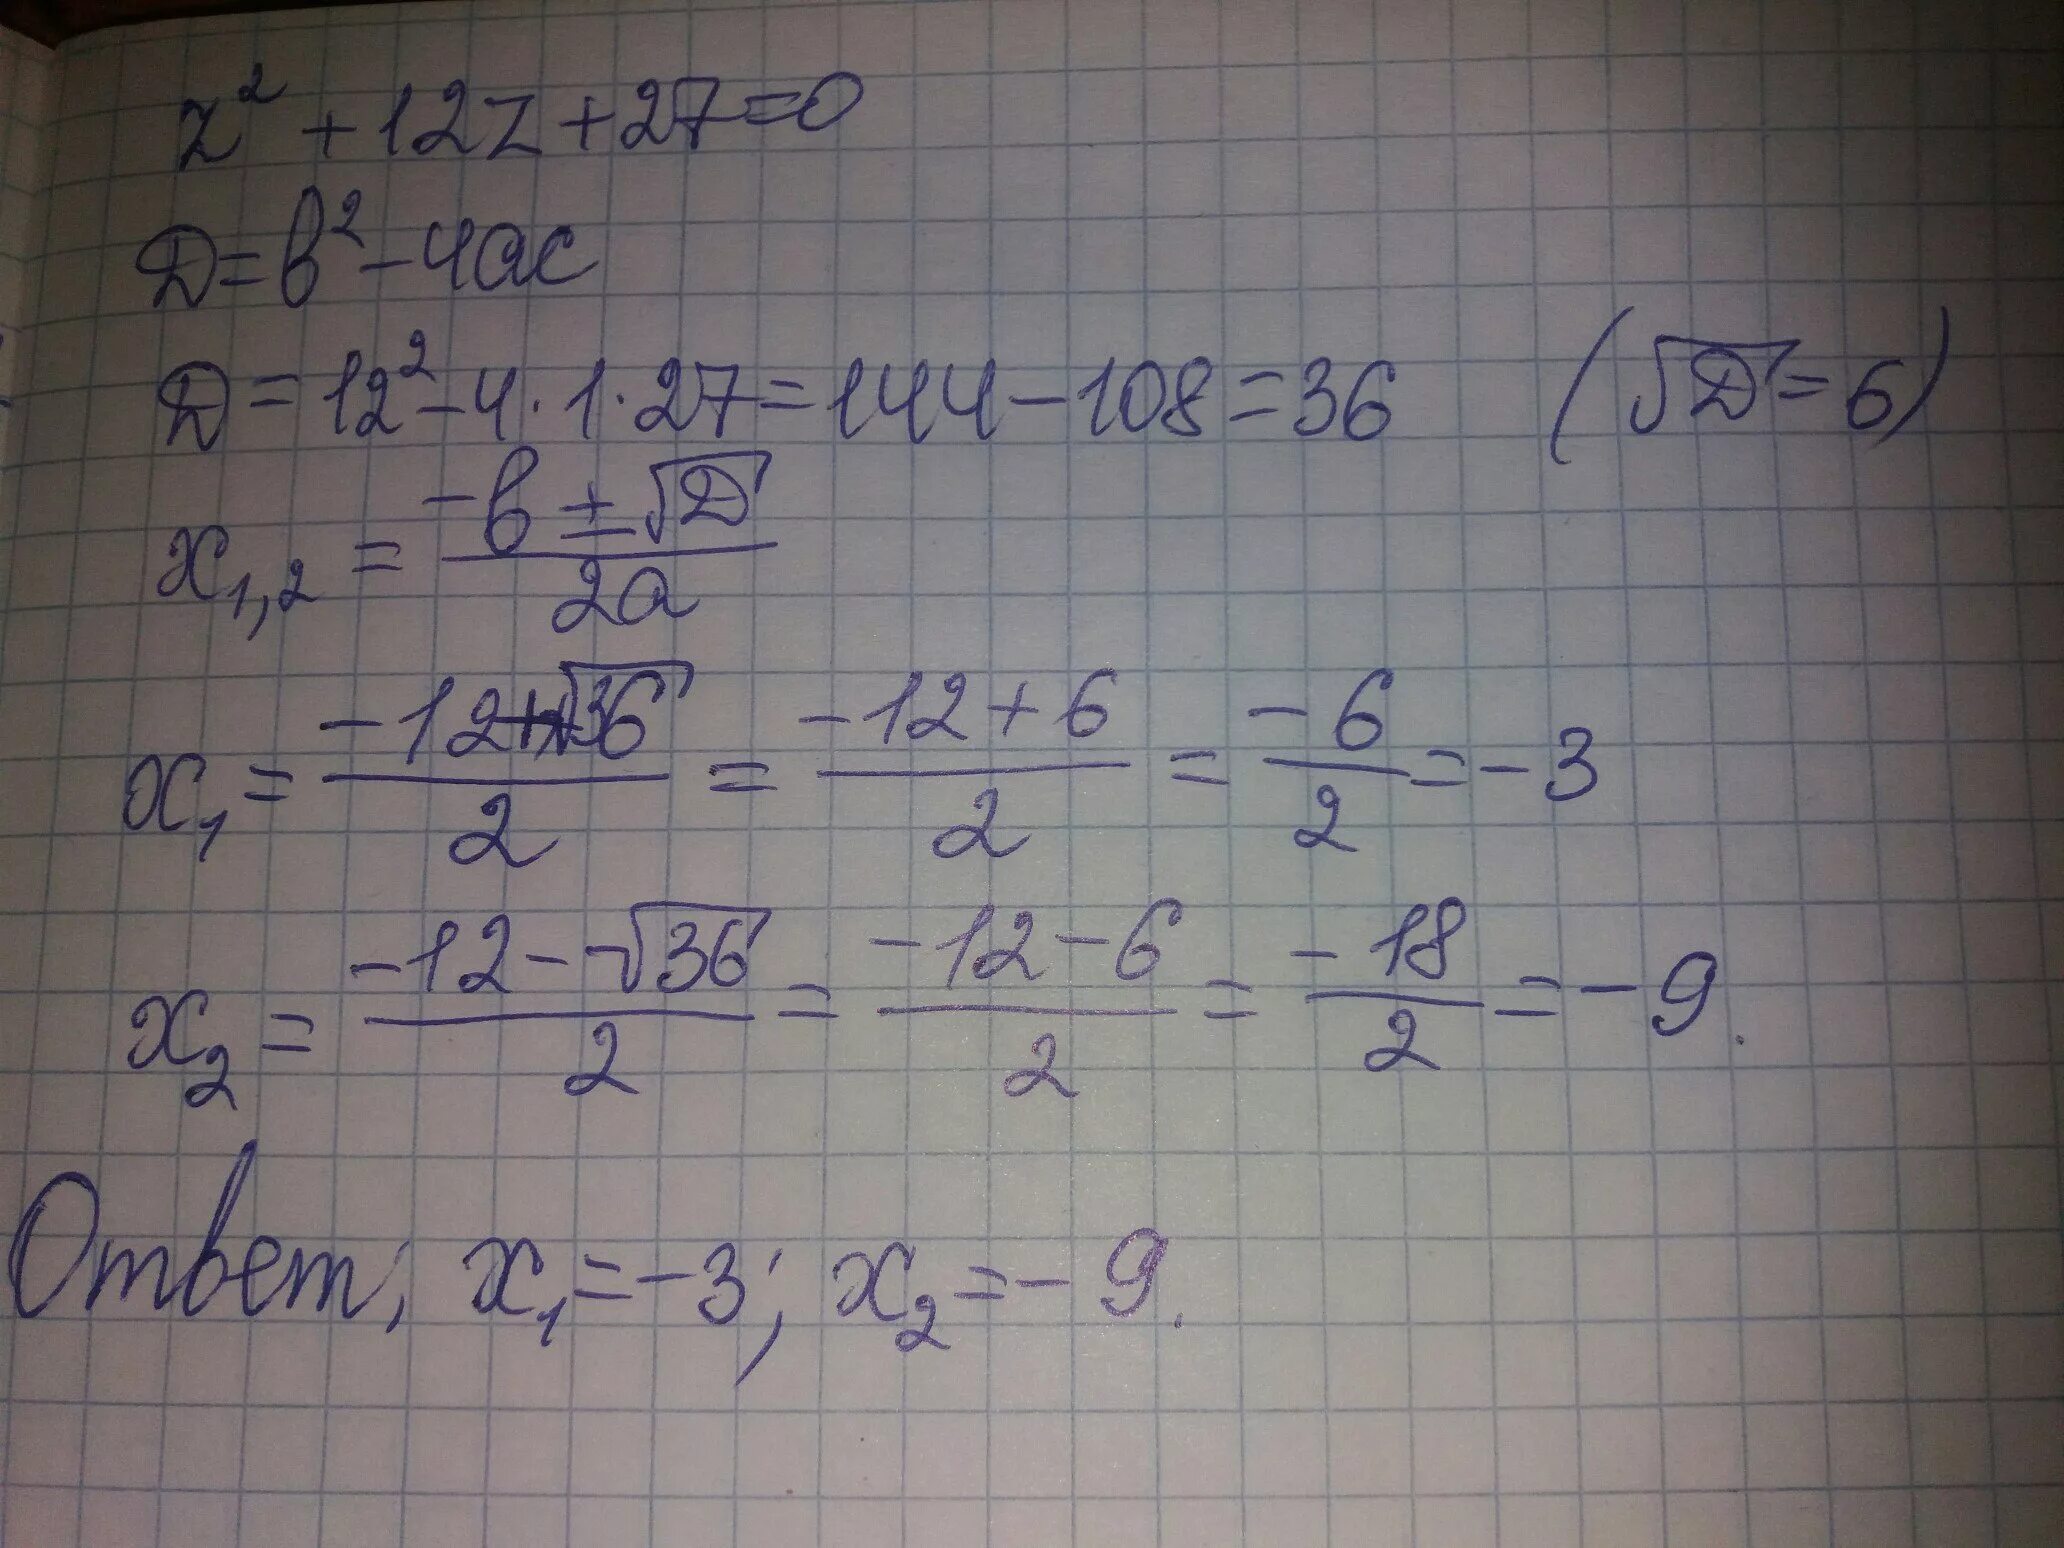 z² + 12z + 27 = 0
Д = в² - 4ас
Д = 12² - 4 · 1 · 27 = 144 - 108 = 36 (√Д = 6)
x₁,₂ = (-в ± √Д) / 2а
x₁ = (-12 + √36) / 2 = (-12 + 6) / 2 = -6 / 2 = -3
x₂ = (-12 - √36) / 2 = (-12 - 6) / 2 = -18 / 2 = -9.
Ответ; x₁ = -3; x₂ = -9.